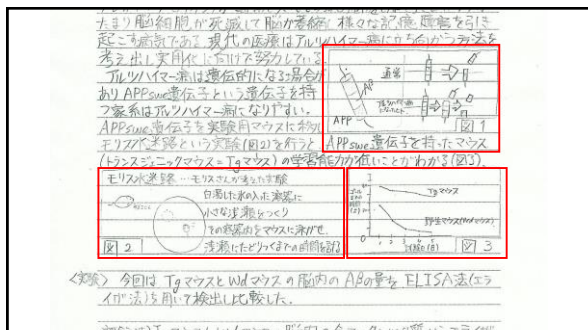 たまり脳細胞が死滅して脳が萎縮し様々な記憶障害を引き
起こす病気である。現代の医療はアルツハイマー病に立ち向かう方法を
考え出し実用化に向けて努力している。
アルツハイマー病は遺伝的になる場合が
あり APPswe遺伝子という遺伝子を持
つ家系はアルツハイマー病になりやすい。
APPswe遺伝子を実験用マウスに
モリス水迷路という実験(図2)を行うと APPswe遺伝子を持ったマウス
(トランスジェニックマウス=Tgマウス)の学習能力が低いことがわかる(図3)。
通常
Aβ
APP
図 1
モリス水迷路…モリスさんが考えた実験
白濁した水の入った容器に
小さな浅瀬をつくり
その容器内をマウスに泳がせ、
浅瀬にたどりつくまでの時間を計る
図 2
Tgマウス
野生マウス(Wdマウス)
1 2 3 4 5
試験日(日)
図 3
<実験> 今回は TgマウスとWdマウスの脳内の Aβの量を ELISA法(エラ
イザ法)を用いて検出し比較した。